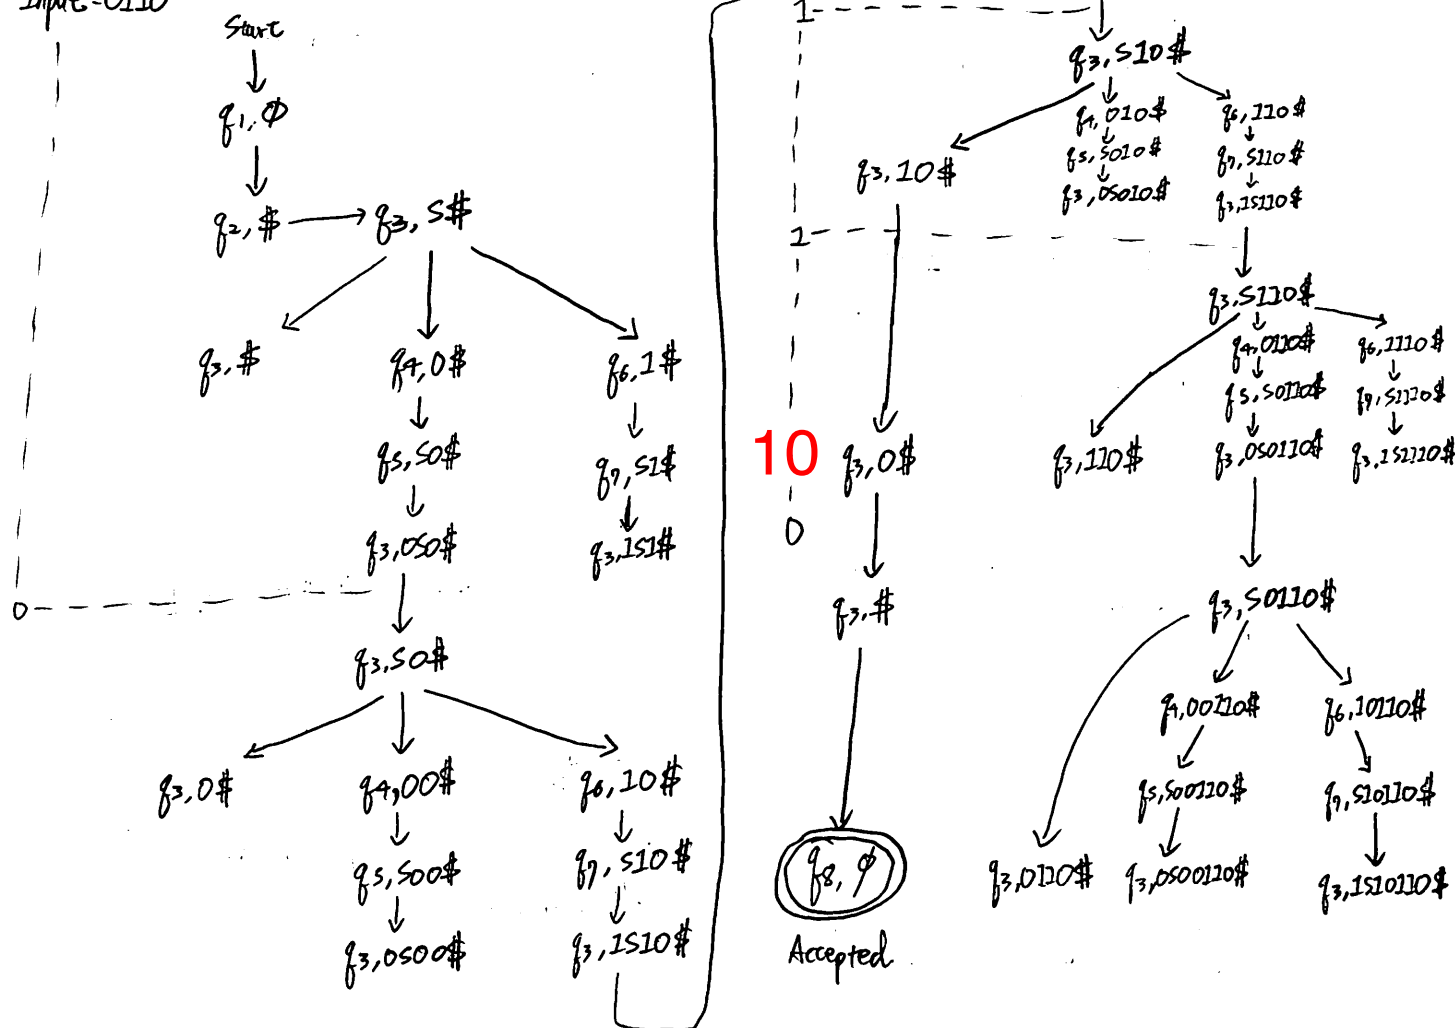 Input=0110
Start
q1, ∅
q2, $
q3, S$
q3, $
q4, 0$
q6, 1$
q5, S0$
q7, S1$
q3, 0S0$
q3, 1S1$
0
q3, S0$
q3, 0$
q4, 00$
q6, 10$
q5, S00$
q7, S10$
q3, 0S00$
q3, 1S10$
1
q3, S10$
q3, 10$
q4, 010$
q6, 110$
q5, S010$
q7, S110$
q3, 0S010$
q3, 1S110$
1
q3, S110$
q4, 0110$
q6, 1110$
q5, S0110$
q7, S1110$
10
q3, 0$
q3, 110$
q3, 0S0110$
q3, 1S1110$
0
q3, $
q3, S0110$
q4, 00110$
q6, 10110$
q5, S00110$
q7, S10110$
q8, ∅
q3, 0110$
q3, 0S00110$
q3, 1S10110$
Accepted